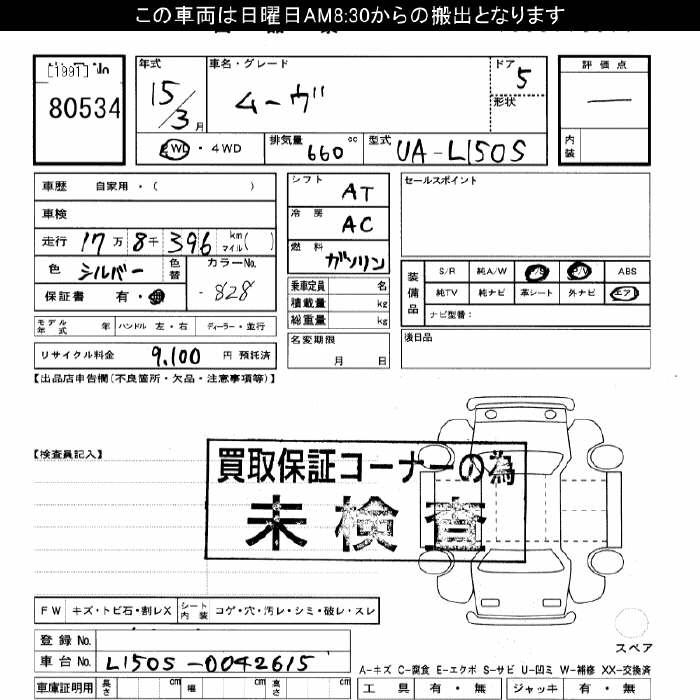 この車両は日曜日AM8:30からの搬出となります
[1991]
80534
年式
15/3月
車名・グレード
ムーヴ
ドア
5
形状
評価点
内装
2WD・4WD
排気量
660 cc
型式
UA-L150S
車歴 自家用・( )
車検
走行 17万8千396 km マイル( )
色 シルバー
色替
カラーNo.
-828
保証書 有・
シフト AT
冷房 AC
燃料 ガソリン
乗車定員 名
積載量 kg
総重量 kg
セールスポイント
装備品
S/R 純A/W P/S P/W ABS
純TV 純ナビ 革シート 外ナビ エアB
ナビ型番:
モデル年式 年 ハンドル 左・右 ディーラー・並行
リサイクル料金 9,100 円 預託済
名変期限
月 日
後日品
【出品店申告欄(不良箇所・欠品・注意事項等)】
【検査員記入】
買取保証コーナーの為
未検査
FW キズ・トビ石・割レX
シート内装 コゲ・穴・汚レ・シミ・破レ・スレ
スペア
登録No.
車台No. L150S-0042615
A-キズ C-腐食 E-エクボ S-サビ U-凹ミ W-補修 XX-交換済
車庫証明用 長さ cm 幅 cm 高さ cm
工具 有・無 ジャッキ 有・無